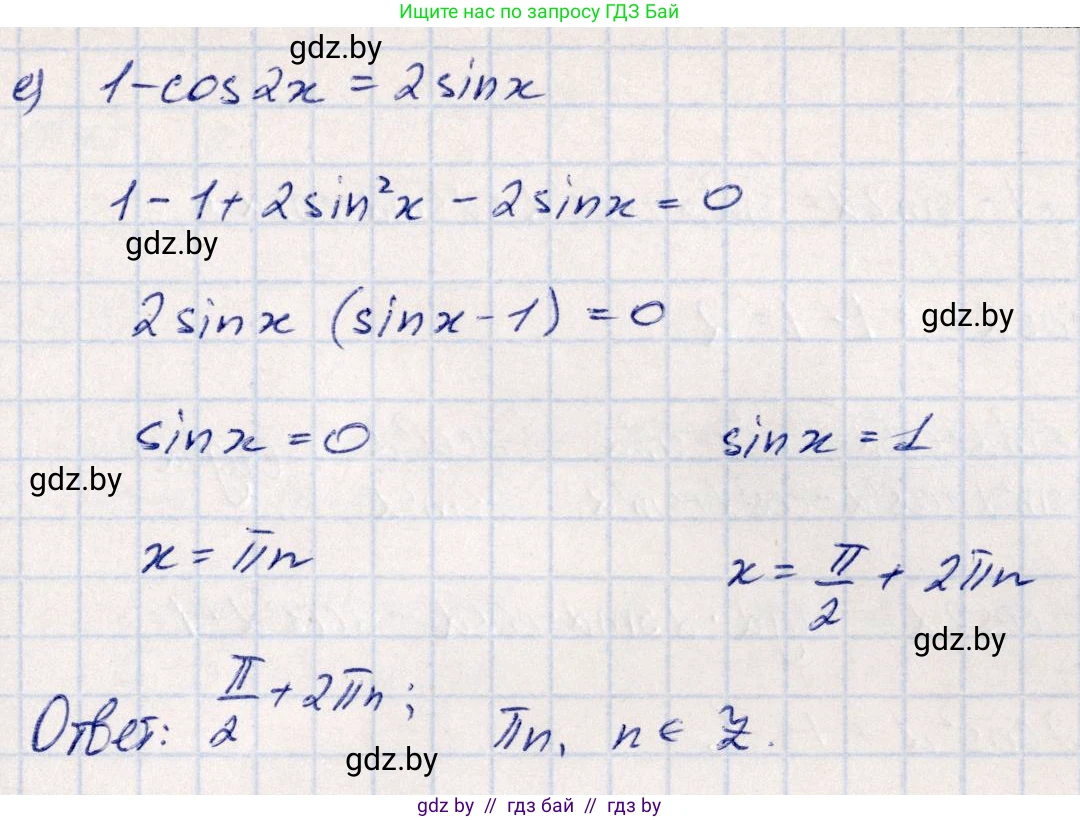 Ищите нас по запросу ГДЗ Бай
gdz.by
е) 1-cos2x = 2sinx
1 - 1 + 2sin²x - 2sinx = 0
gdz.by
2sinx (sinx - 1) = 0
gdz.by
sinx = 0 sinx = 1
gdz.by
x = πn x = π/2 + 2πn
gdz.by
Ответ: π/2 + 2πn; πn, n ∈ Z.
gdz.by
gdz by // гдз бай // гдз by